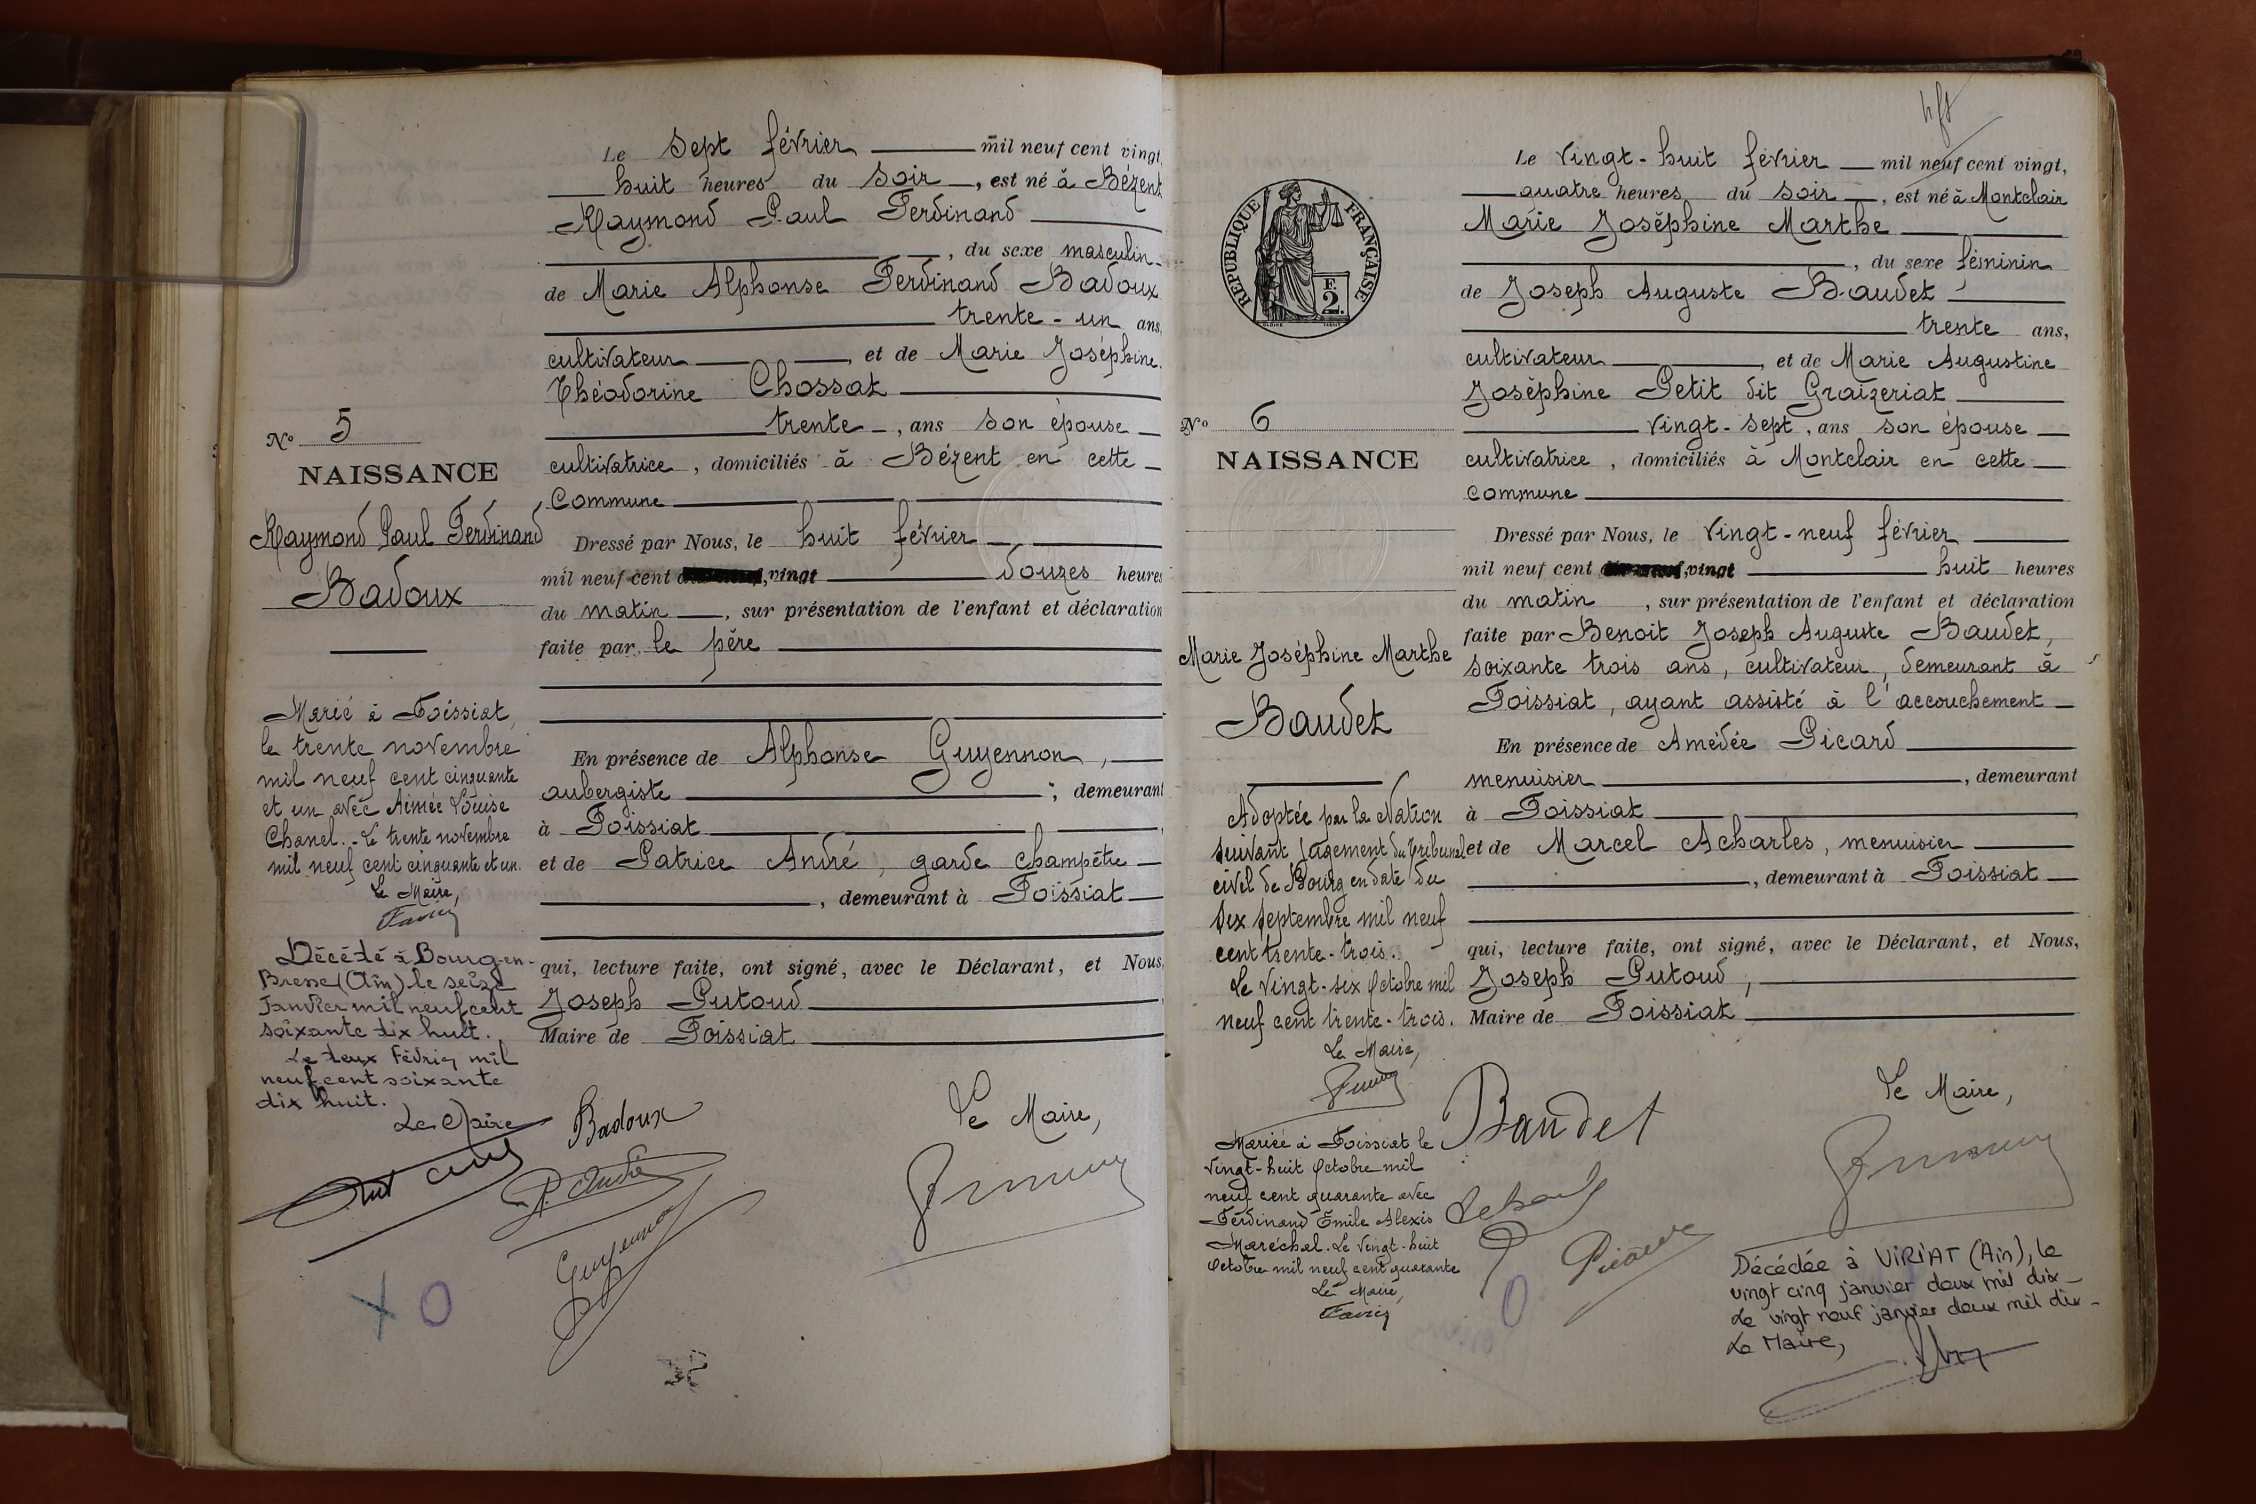 Le sept février mil neuf cent vingt,
huit heures du soir, est né à Bézent
Raymond Paul Ferdinand
, du sexe masculin
de Marie Alphonse Ferdinand Badoux
trente-un ans,
cultivateur, et de Marie Joséphine
Théodorine Chossat
trente, ans son épouse
cultivatrice, domiciliés à Bézent en cette
Commune
Dressé par Nous, le huit février
mil neuf cent vingt douzes heures
du matin, sur présentation de l'enfant et déclaration
faite par le père
En présence de Alphonse Guyennon,
aubergiste, demeurant
à Foissiat
et de Patrice André, garde champêtre
, demeurant à Foissiat
qui, lecture faite, ont signé, avec le Déclarant, et Nous,
Joseph Putoud
Maire de Foissiat
Le Maire,
Badoux
P. André
Guyennon
No 5
NAISSANCE
Raymond Paul Ferdinand
Badoux
Marié à Foissiat,
le trente novembre
mil neuf cent cinquante
et un avec Aimée Louise
Chanel. - Le trente novembre
mil neuf cent cinquante et un.
Le Maire,
Décédé à Bourg-en-
Bresse (Ain) le seize
Janvier mil neuf cent
soixante dix huit.
Le deux Février mil
neuf cent soixante
dix huit.
Le Maire
X O
Le vingt-huit février mil neuf cent vingt,
quatre heures du soir, est né à Montclair
Marie Joséphine Marthe
, du sexe féminin
de Joseph Auguste Baudet
trente ans,
cultivateur, et de Marie Augustine
Joséphine Petit dit Graizeriat
vingt-sept, ans son épouse
cultivatrice, domiciliés à Montclair en cette
commune
Dressé par Nous, le vingt-neuf février
mil neuf cent vingt huit heures
du matin, sur présentation de l'enfant et déclaration
faite par Benoit Joseph Auguste Baudet,
soixante trois ans, cultivateur, demeurant à
Foissiat, ayant assisté à l'accouchement
En présence de Amédée Picard
menuisier, demeurant
à Foissiat
et de Marcel Acharles, menuisier
, demeurant à Foissiat
qui, lecture faite, ont signé, avec le Déclarant, et Nous,
Joseph Putoud,
Maire de Foissiat
Le Maire,
Baudet
Picard
RÉPUBLIQUE FRANÇAISE
F.
2.
No 6
NAISSANCE
Marie Joséphine Marthe
Baudet
Adoptée par la Nation
suivant jugement du Tribunal
civil de Bourg en date du
dix septembre mil neuf
cent trente-trois.
Le vingt-six Octobre mil
neuf cent trente-trois.
Le Maire,
Mariée à Foissiat le
vingt-huit Octobre mil
neuf cent quarante avec
Ferdinand Emile Alexis
Maréchal. Le vingt-huit
Octobre mil neuf cent quarante
Le Maire,
O
Décédée à VIRIAT (Ain), le
vingt cinq janvier deux mil dix -
Le vingt neuf janvier deux mil dix -
Le Maire,